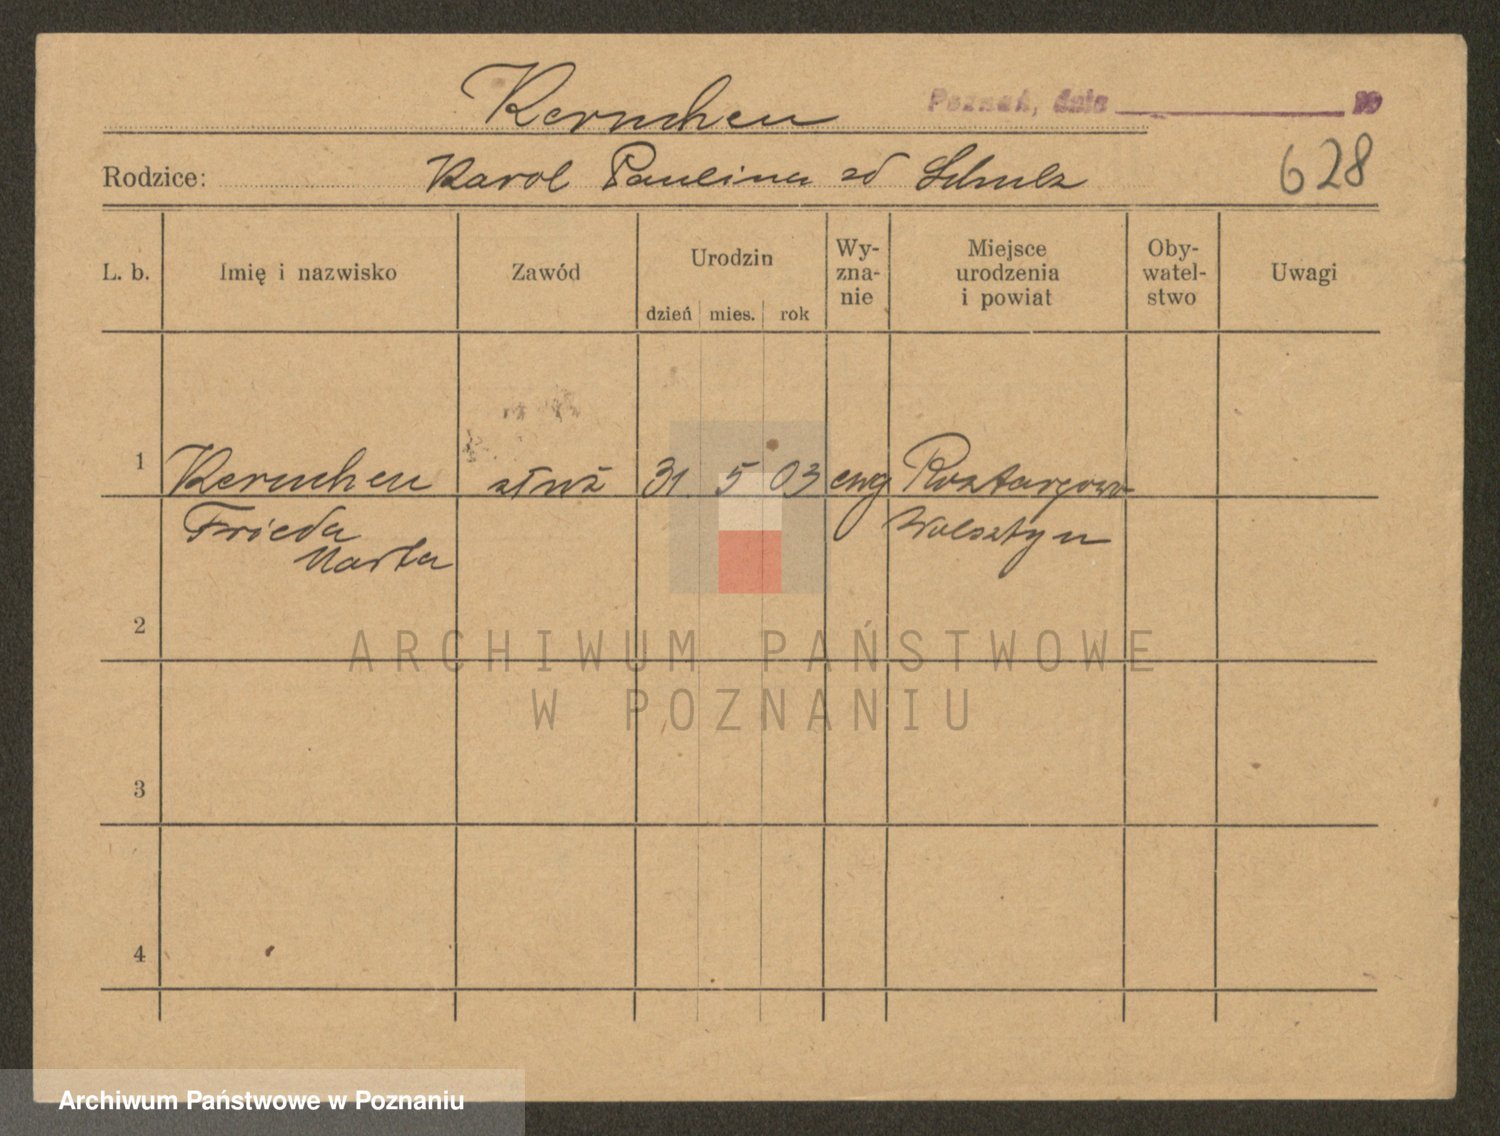 Kernchen
Poznań, dnia 19
Rodzice: Karol Paulina zd Schulz
628
L. b.
Imię i nazwisko
Zawód
Urodzin
dzień mies. rok
Wy-
zna-
nie
Miejsce
urodzenia
i powiat
Oby-
watel-
stwo
Uwagi
1 Kernchen służ 31 5 03 ewg Roztargowo
Frieda Wolsztyn
Marta
2
ARCHIWUM PAŃSTWOWE
W POZNANIU
3
4
Archiwum Państwowe w Poznaniu